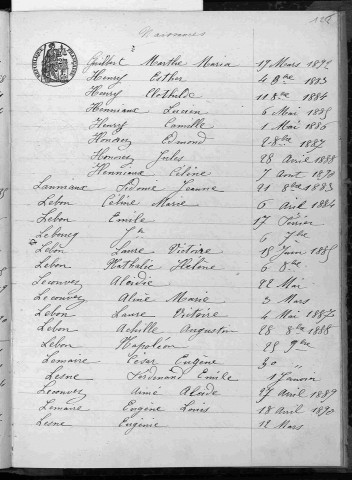 Naissances
Guilbert Marthe Maria 17 Mars 1892
Henry Esther 4 8bre 1883
Henry Clothilde 11 8bre 1884
Henniaut Lucien 6 Mai 1885
Henry Camille 1 Mai 1886
Honorez Edmond 2 8bre 1887
Honorez Jules 28 Avril 1888
Hennione Céline 7 Aout 1890
Lanniaux Sidonie Jeanne 21 8bre 1883
Lebon Céline Marie 6 Avril 1884
Lebon Emile 17 Février
Lebourg 6 7bre
Lebon Laure Victoire 15 Juin 1885
Lebon Nathalie Hélène 6 8bre
Lecouvez Aloïdie 22 Mai
Lecouvez Aline Marie 3 Mars
Lebon Laure Victoire 4 Mai 1887
Lebon Achille Augustin 28 8bre 1888
Lebon Napoléon 25 9bre
Lemaire César Eugène 30 "
Lesne Ferdinand Emile 1 Janvier
Lecouvez Aimé Aloïde 27 Avril 1889
Lemaire Eugène Louis 18 Avril 1890
Lesne Eugénie 12 Mars